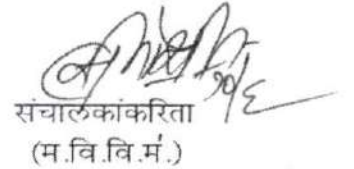 संचालकांकरिता
(म.वि.वि.मं.)